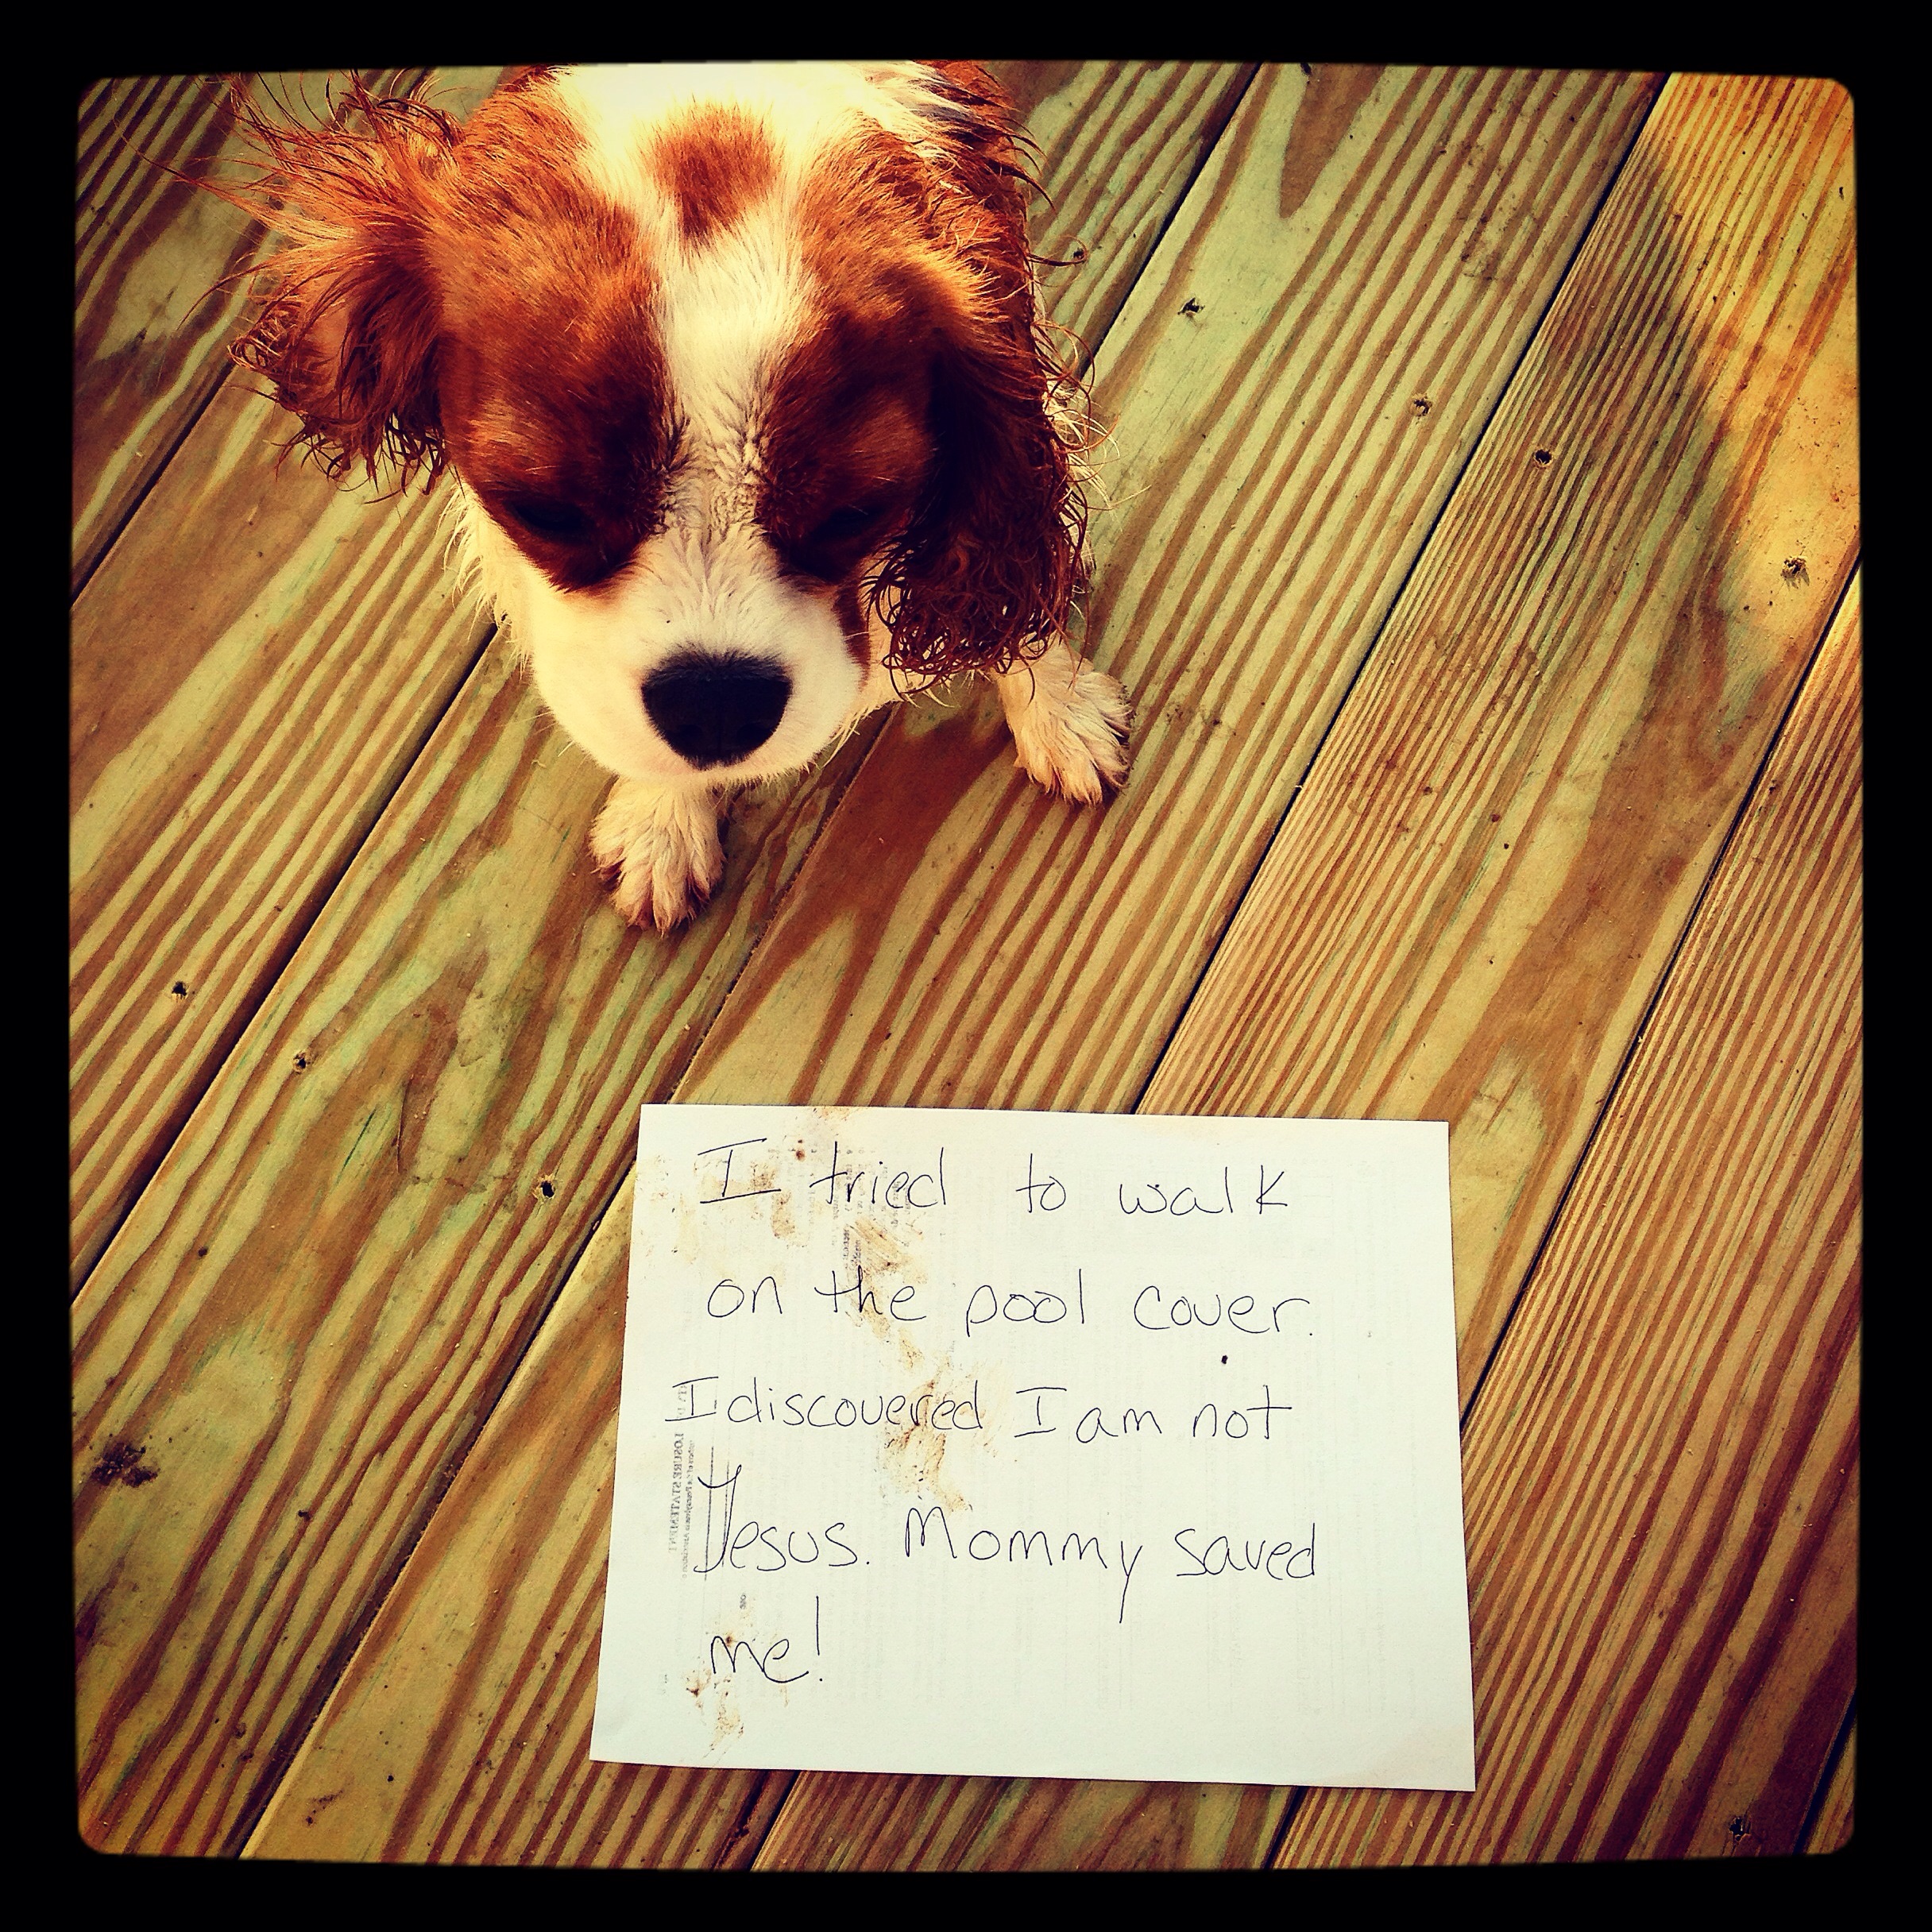 I tried to walk
on the pool cover.
I discovered I am not
Jesus. Mommy saved
me!